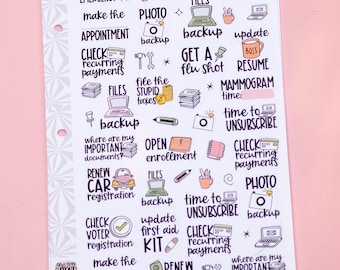 make the
APPOINTMENT
PHOTO
backup
FILES
backup
update
BOSS
RESUME
CHECK
recurring
payments
GET A
flu shot
FILES
backup
file the
STUPID
taxes
MAMMOGRAM
time:
time to
UNSUBSCRIBE
where are my
IMPORTANT
documents?
OPEN
enrollment
CHECK
recurring
payments
RENEW
CAR
registration
FILES
backup
time to
UNSUBSCRIBE
PHOTO
backup
CHECK
VOTER
registration
update
first aid
KIT
CHECK
recurring
payments
make the
RENEW